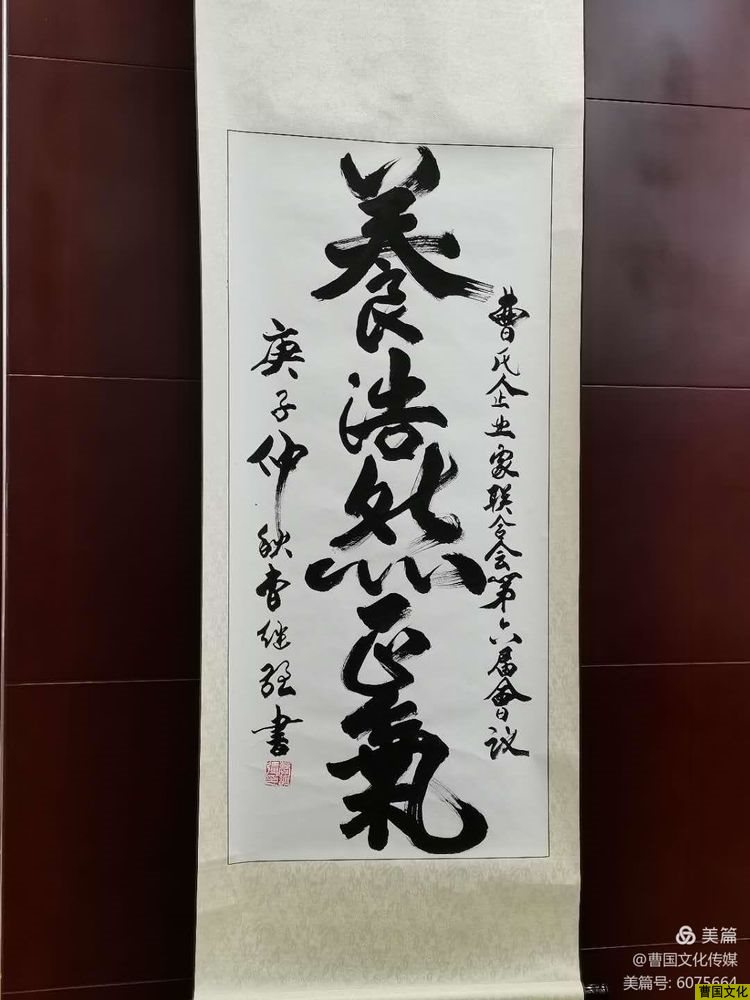 曹氏企业家联合会第六届會议
養浩然正氣
庚子仲秋曹继强書
美篇
@曹国文化传媒
美篇号: 6075664
曹国文化